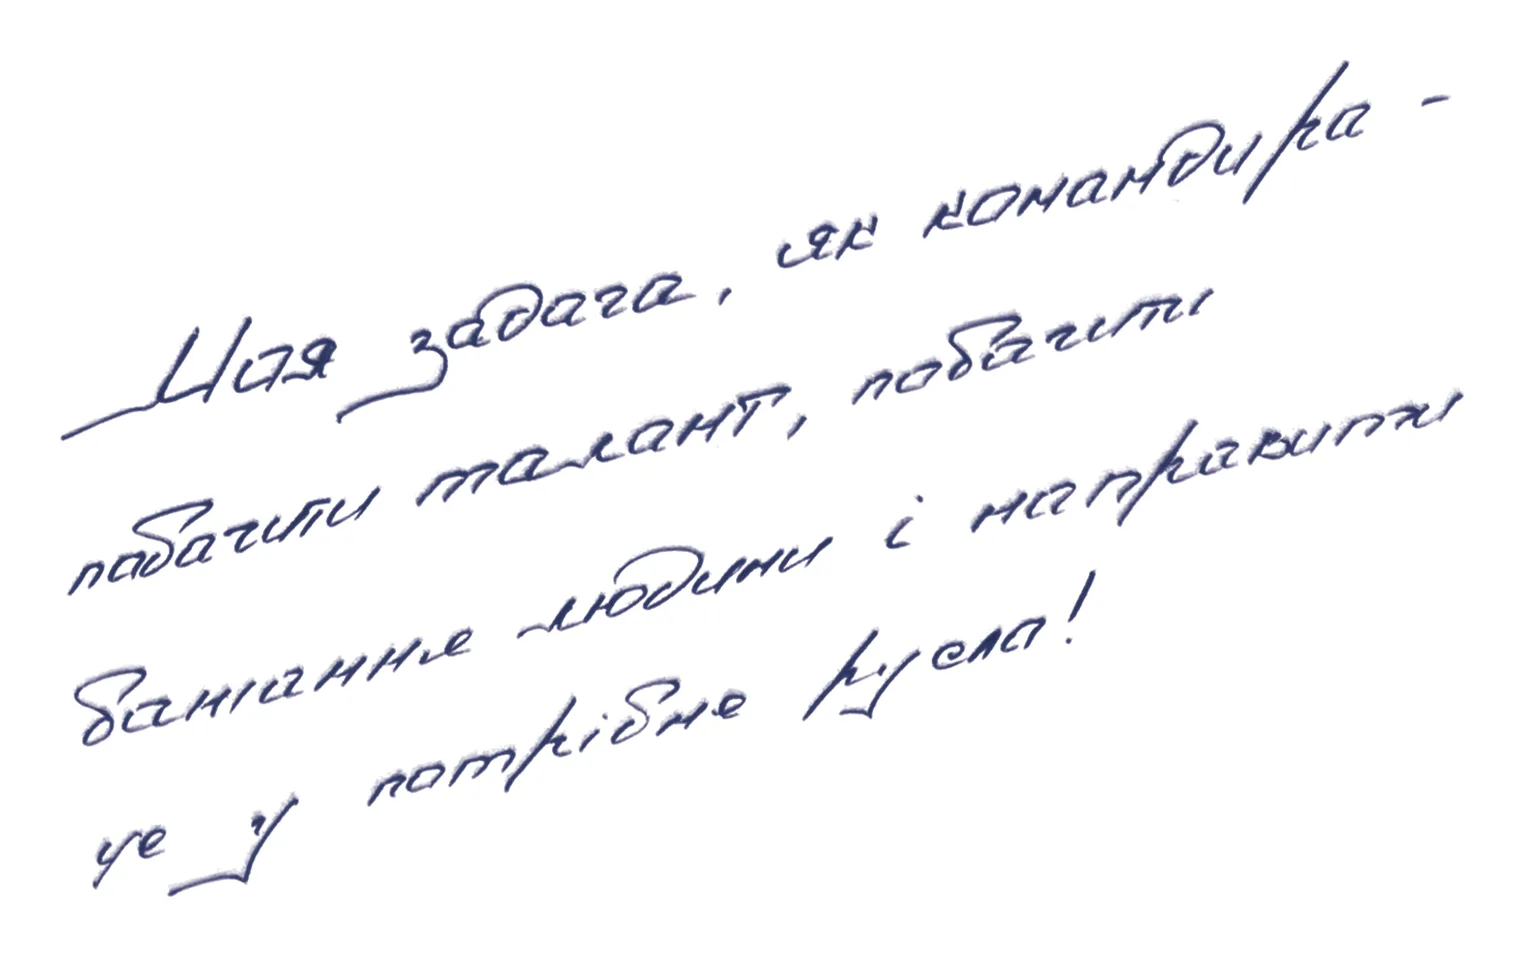 Моя задача, як командира -
побачити талант, побачити
бажання людини і направити
це у потрібне русло!